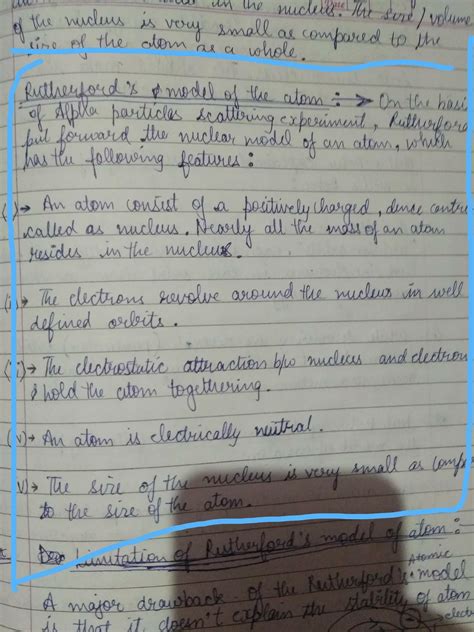 in the nucleus. The size / volume
of the nucleus is very small as compared to the
size of the atom as a whole.
Rutherford's model of the atom : → On the basi
of Alpha particles scattering experiment, Rutherfor
put forward the nuclear model of an atom, which
has the following features :
→ An atom consist of a positively charged, dence centre
called as nucleus. Nearly all the mass of an atom
resides in the nucleus.
(ii) → The electrons revolve around the nucleus in well
defined orbits.
→ The electrostatic attraction b/w nucleus and electron
hold the atom togethering.
→ An atom is electrically neutral.
v) → The size of the nucleus is very small as comp
to the size of the atom.
Limitation of Rutherford's model of atom :
Atomic
A major drawback of the Rutherford's model
is that it doesn't explain the stability of atom